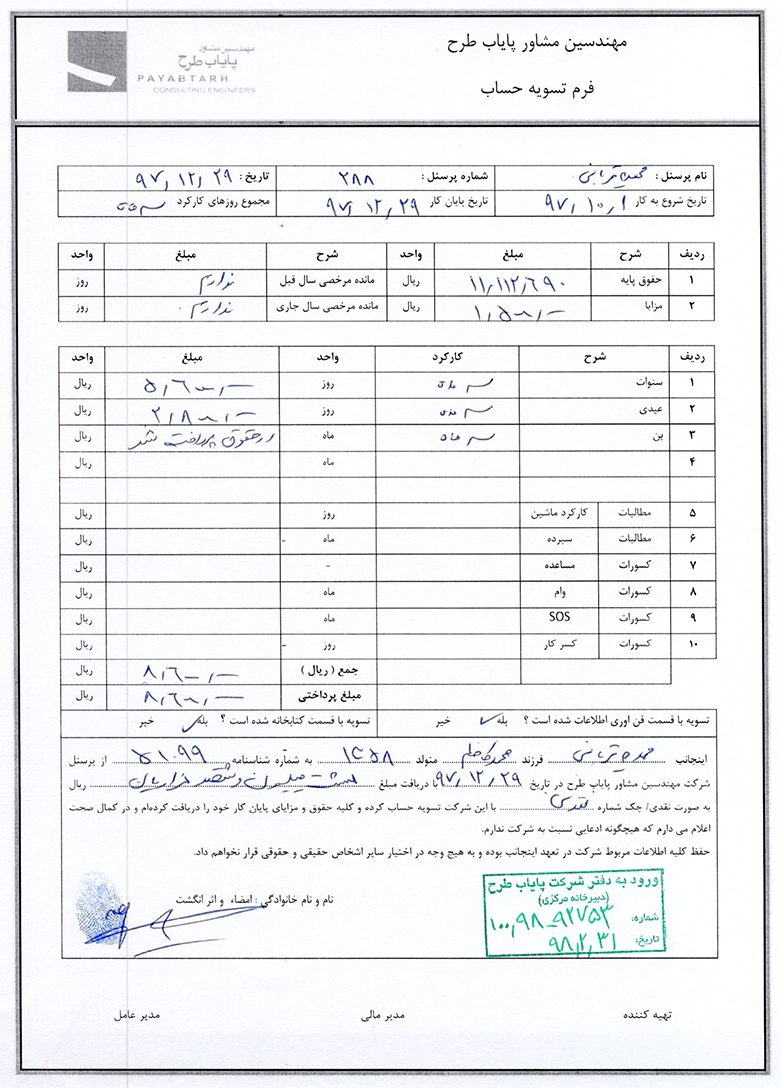 مهندسین مشاور پایاب طرح
مهندسین مشاور
پایاب طرح
PAYABTARH
CONSULTING ENGINEERS
فرم تسویه حساب
نام پرسنل : قربانی شماره پرسنل : ۲۸۸ تاریخ : ۹۷,۱۲,۲۹
تاریخ شروع به کار ۹۷,۱۰,۱ تاریخ پایان کار ۹۷,۱۲,۲۹ مجموع روزهای کارکرد سه ماه
ردیف شرح مبلغ واحد شرح مبلغ واحد
۱ حقوق پایه ۱۱,۱۱۲,۶۹۰ ریال مانده مرخصی سال قبل نداریم روز
۲ مزایا ۱,۵۰۰,۰۰۰ ریال مانده مرخصی سال جاری نداریم روز
ردیف شرح کارکرد واحد مبلغ واحد
۱ سنوات سه ماه روز ۵,۶۰۰,۰۰۰ ریال
۲ عیدی سه ماه روز ۲,۸۰۰,۰۰۰ ریال
۳ بن سه ماه ماه در حقوق پرداخت شد ریال
۴ ماه ریال
۵ مطالبات کارکرد ماشین روز ریال
۶ مطالبات سپرده ماه - ریال
۷ کسورات مساعده - ریال
۸ کسورات وام ماه ریال
۹ کسورات SOS ماه ریال
۱۰ کسورات کسر کار روز - ریال
جمع ( ریال ) ۸,۶۰۰,۰۰۰ ریال
مبلغ پرداختی ۸,۶۰۰,۰۰۰ ریال
تسویه با قسمت فن اوری اطلاعات شده است ؟ بله ✓ خیر تسویه با قسمت کتابخانه شده است ؟ بله ✓ خیر
اینجانب قربانی فرزند محمدکاظم متولد ۱۳۵۸ به شماره شناسنامه ۵۱۰۹۹ از پرسنل
شرکت مهندسین مشاور پایاب طرح در تاریخ ۹۷,۱۲,۲۹ با دریافت مبلغ هشت میلیون و ششصد هزار ریال ریال
به صورت نقدی/ چک شماره نقدی با این شرکت تسویه حساب کرده و کلیه حقوق و مزایای پایان کار خود را دریافت کرده‌ام و در کمال صحت
اعلام می دارم که هیچگونه ادعایی نسبت به شرکت ندارم.
حفظ کلیه اطلاعات مربوط شرکت در تعهد اینجانب بوده و به هیچ وجه در اختیار سایر اشخاص حقیقی و حقوقی قرار نخواهم داد.
نام و نام خانوادگی : امضاء و اثر انگشت
ورود به دفتر شرکت پایاب طرح
(دبیرخانه مرکزی)
شماره: ۱۰۰,۹۸-۹۲۷۵۳
تاریخ: ۹۸,۲,۳۱
تهیه کننده مدیر مالی مدیر عامل